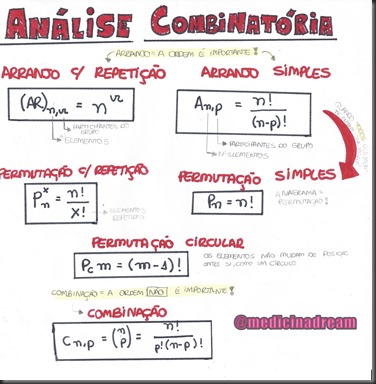 ANÁLISE COMBINATÓRIA
ARRANJO = A ORDEM É IMPORTANTE!
ARRANJO C/ REPETIÇÃO
(AR)n,r = n^r
PARTICIPANTES DO GRUPO
ELEMENTOS
ARRANJO SIMPLES
An,p = n! / (n-p)!
PARTICIPANTES DO GRUPO
Nº ELEMENTOS
PERMUTAÇÃO C/ REPETIÇÃO
P^x n = n! / x!
ELEMENTOS REPETIDOS
PERMUTAÇÃO SIMPLES
Pn = n!
ANAGRAMA = PERMUTAÇÃO!
PERMUTAÇÃO CIRCULAR
Pc m = (m-1)!
OS ELEMENTOS NÃO MUDAM DE POSIÇÃO
ENTRE SI, COMO UM CÍRCULO
COMBINAÇÃO = A ORDEM NÃO É IMPORTANTE!
COMBINAÇÃO
Cn,p = (n p) = n! / p!(n-p)!
@medicinadream